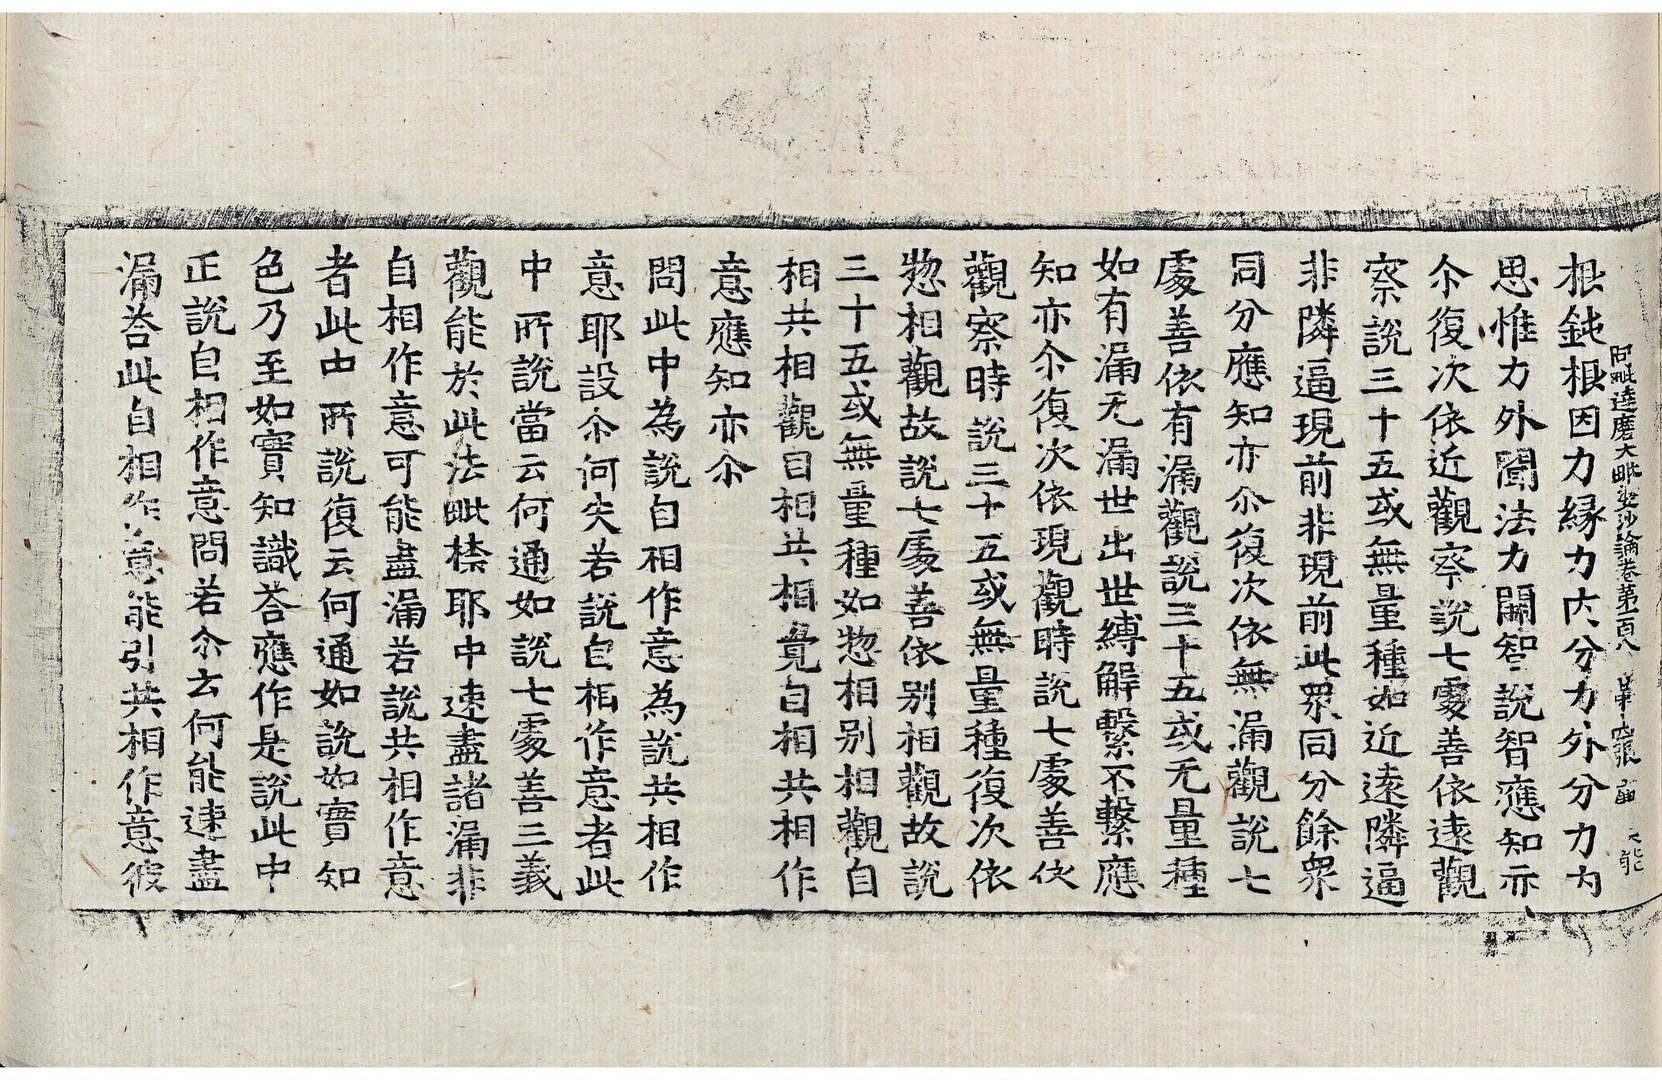 阿毗達磨大毗婆沙論卷第一百八 第 張
根鈍根因力緣力內分力外分力內
思惟力外聞法力開智說智應知亦
尒復次依近觀察說七處善依遠觀
察說三十五或無量種如近遠隣逼
非隣逼現前非現前此眾同分餘眾
同分應知亦尒復次依無漏觀說七
處善依有漏觀說三十五或无量種
如有漏无漏世出世縛解繫不繫應
知亦尒復次依現觀時說七處善依
觀察時說三十五或無量種復次依
惣相觀故說七處善依別相觀故說
三十五或無量種如惣相別相觀自
相共相觀自相共相覺自相共相作
意應知亦尒
問此中為說自相作意為說共相作
意耶設尒何失若說自相作意者此
中所說當云何通如說七處善三義
觀能於此法毗柰耶中速盡諸漏非
自相作意可能盡漏若說共相作意
者此中所說復云何通如說如實知
色乃至如實知識荅應作是說此中
正說自相作意問若尒云何能速盡
漏荅此自相作意能引共相作意彼